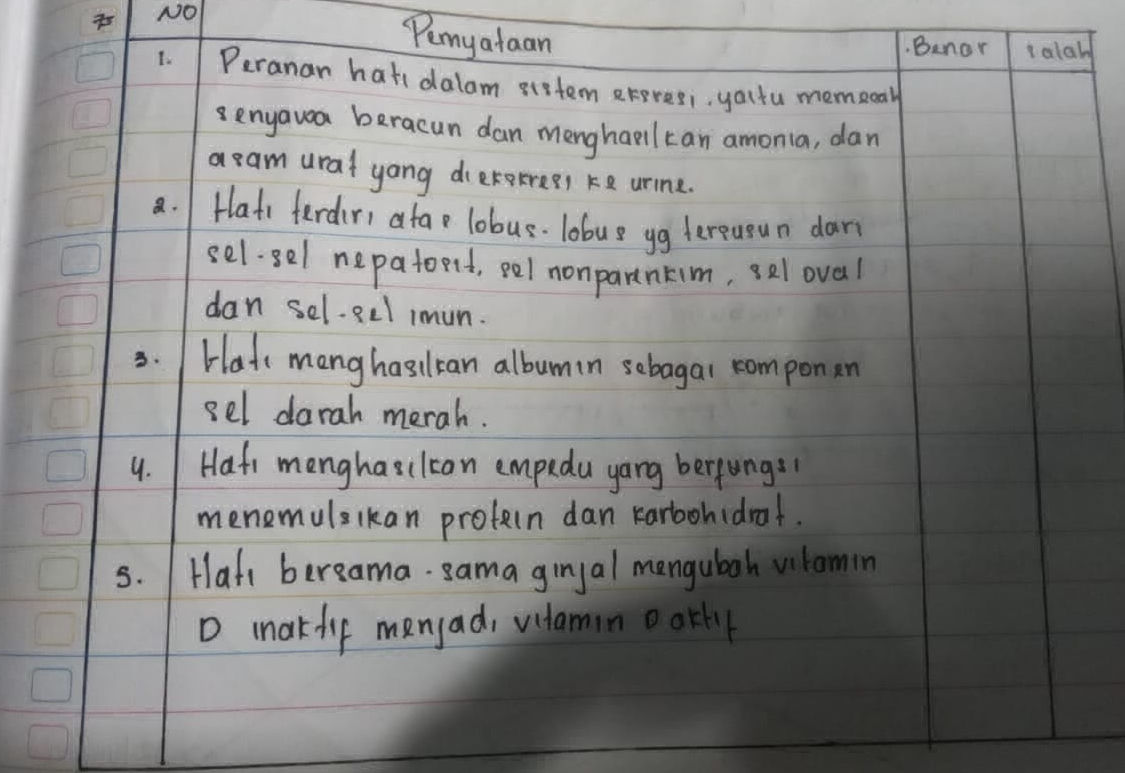 NO Pernyataan Benar salah
1. Peranan hati dalam sistem eksresi, yaitu memecah
senyawa beracun dan menghasilkan amonia, dan
asam urat yang diekskresi ke urine.
2. Hati terdiri atas lobus-lobus yg tersusun dari
sel-sel hepatosit, sel nonparenkim, sel oval
dan sel-sel imun.
3. Hati menghasilkan albumin sebagai komponen
sel darah merah.
4. Hati menghasilkan empedu yang berfungsi
menemulsikan protein dan karbohidrat.
5. Hati bersama-sama ginjal mengubah vitamin
D inaktif menjadi vitamin D aktif